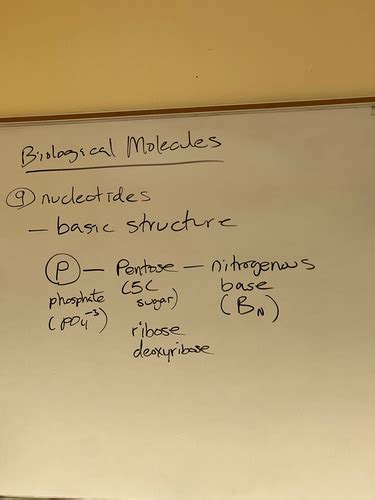 Biological Molecules
9 nucleotides
— basic structure
P — Pentose — nitrogenous
phosphate (5C base
(PO4⁻³) sugar) (BN)
ribose
deoxyribose